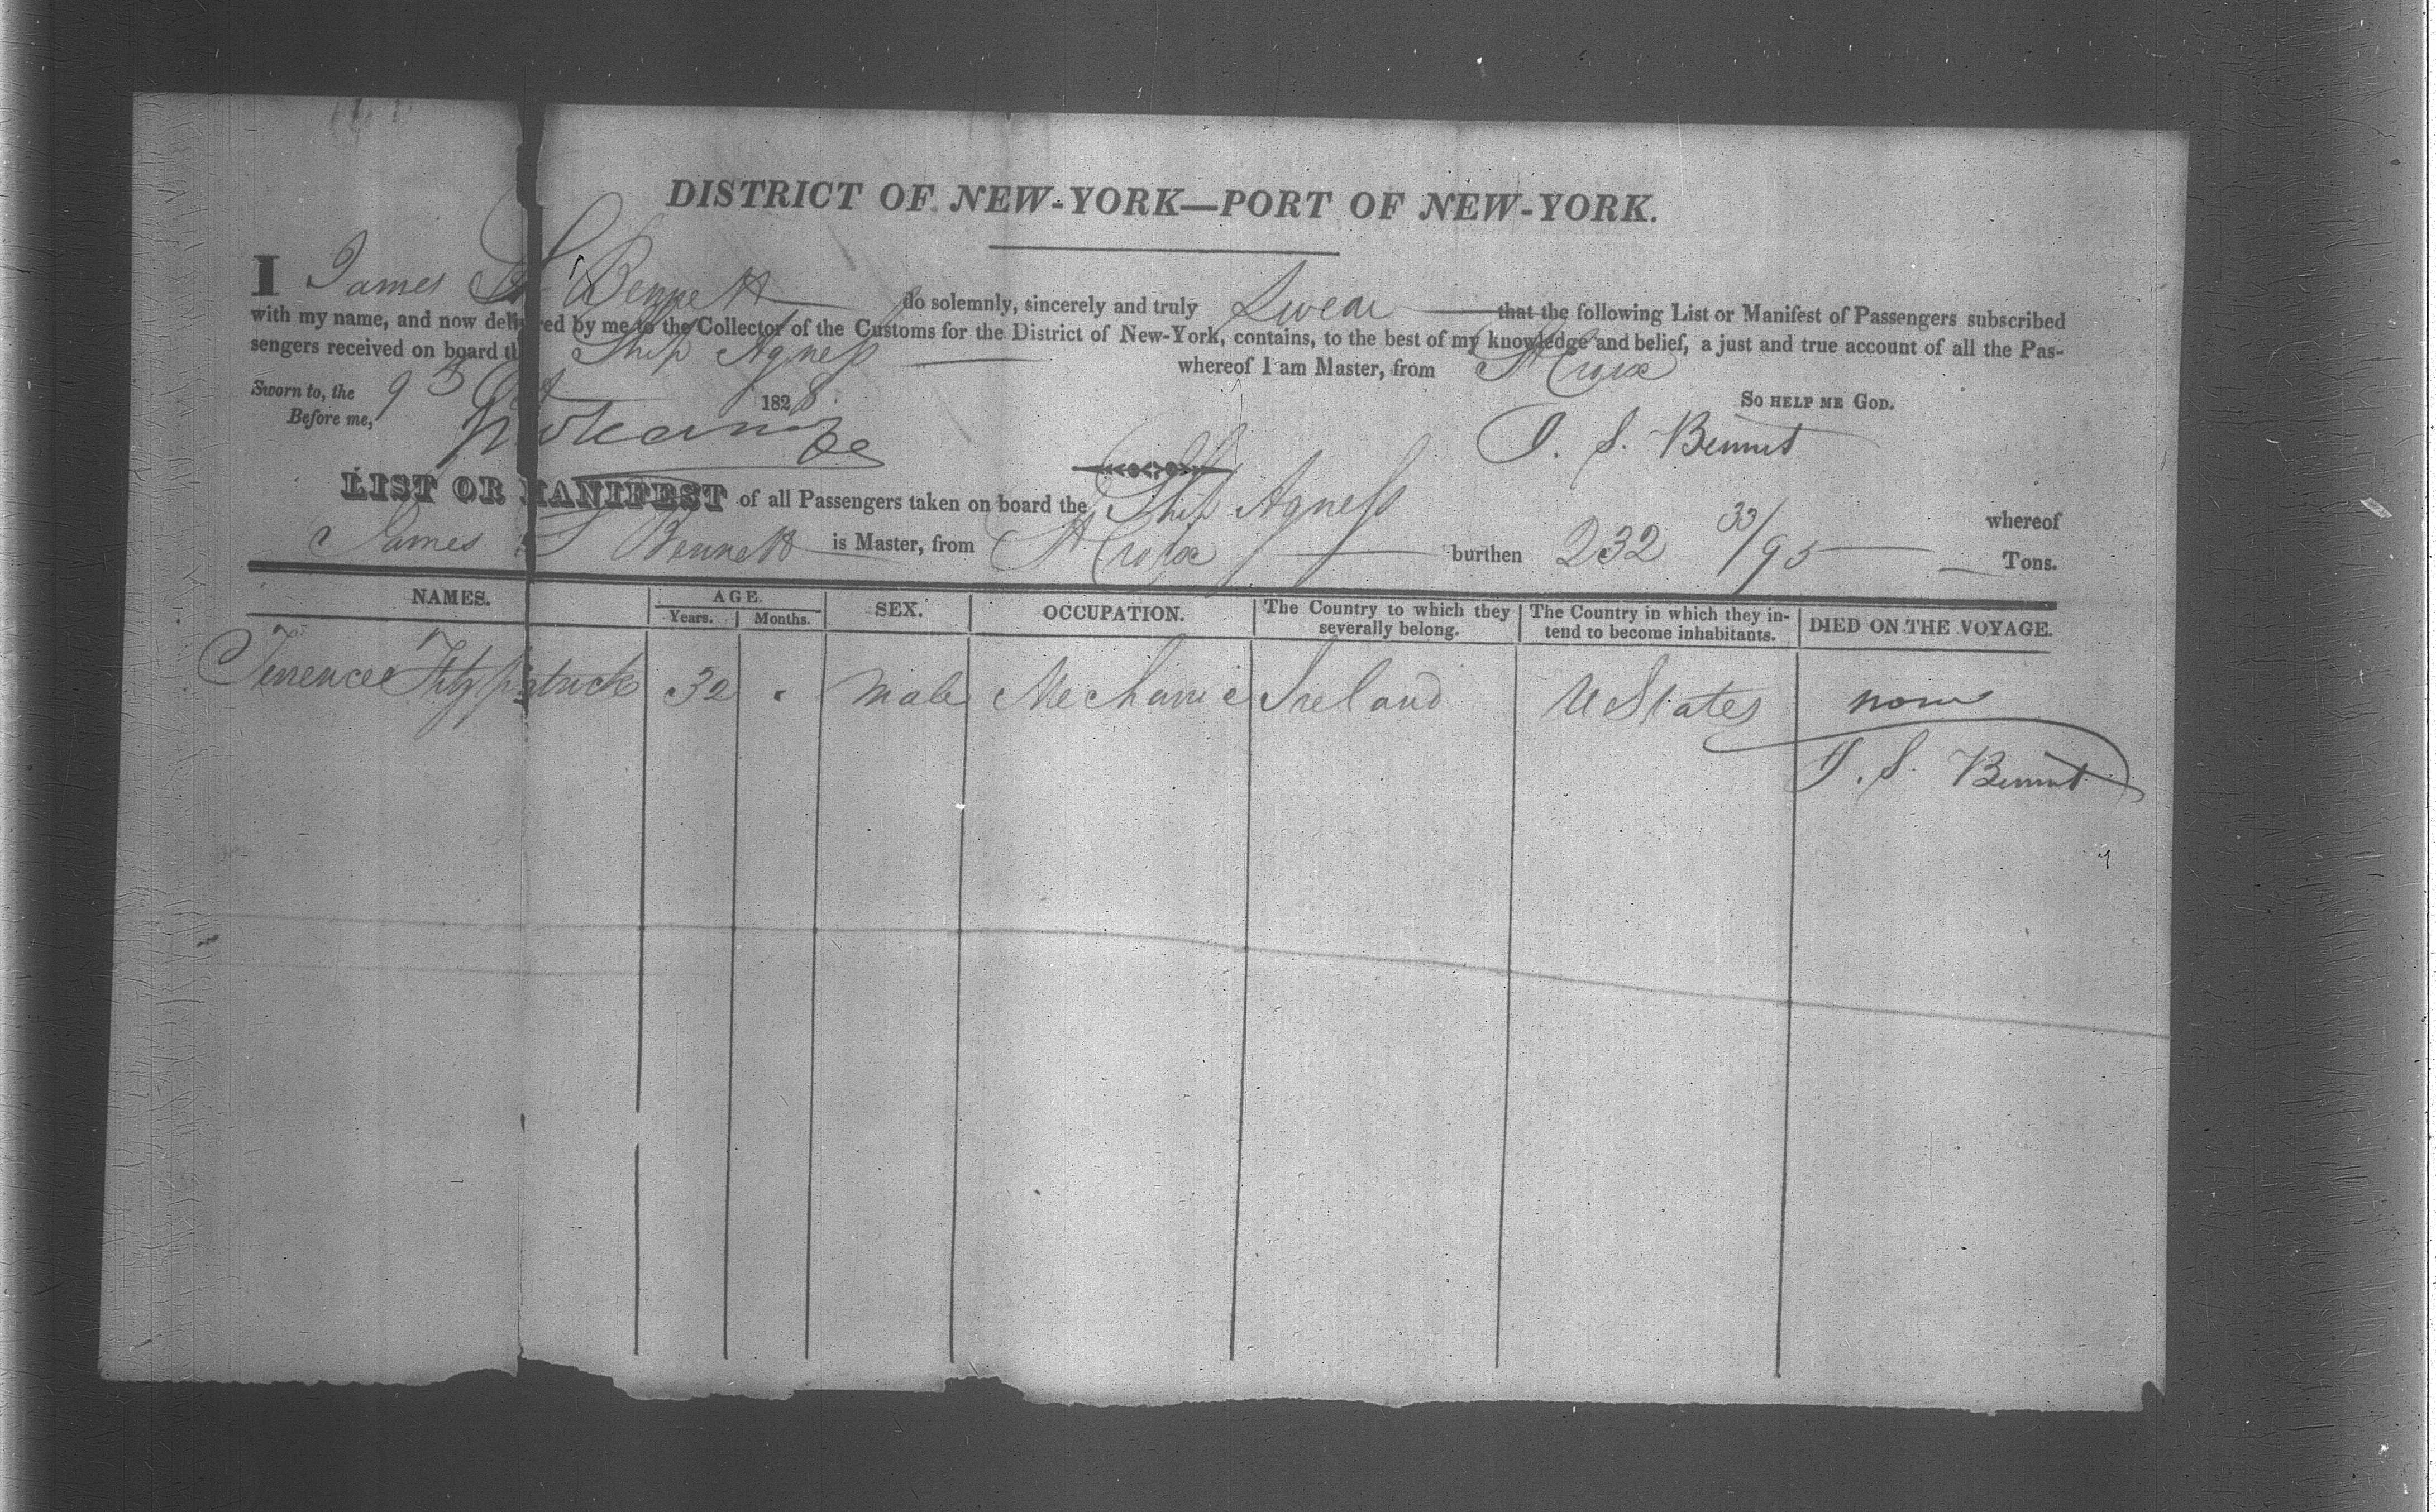 DISTRICT OF NEW-YORK—PORT OF NEW-YORK.
I James S Bennett do solemnly, sincerely and truly Swear that the following List or Manifest of Passengers subscribed
with my name, and now delivered by me to the Collector of the Customs for the District of New-York, contains, to the best of my knowledge and belief, a just and true account of all the Pas-
sengers received on board the Ship Agness whereof I am Master, from St Croix
Sworn to, the 9 Oct 1828. So HELP ME GOD.
Before me, J. S. Bennet
LIST OR MANIFEST of all Passengers taken on board the Ship Agness whereof
James S Bennett is Master, from St Croix burthen 232 33/95 Tons.
NAMES. AGE. Years. Months. SEX. OCCUPATION. The Country to which they severally belong. The Country in which they in-tend to become inhabitants. DIED ON THE VOYAGE.
Terrence Fitzpatrick 32 male Mechanic Ireland U States none
J. S. Bennet